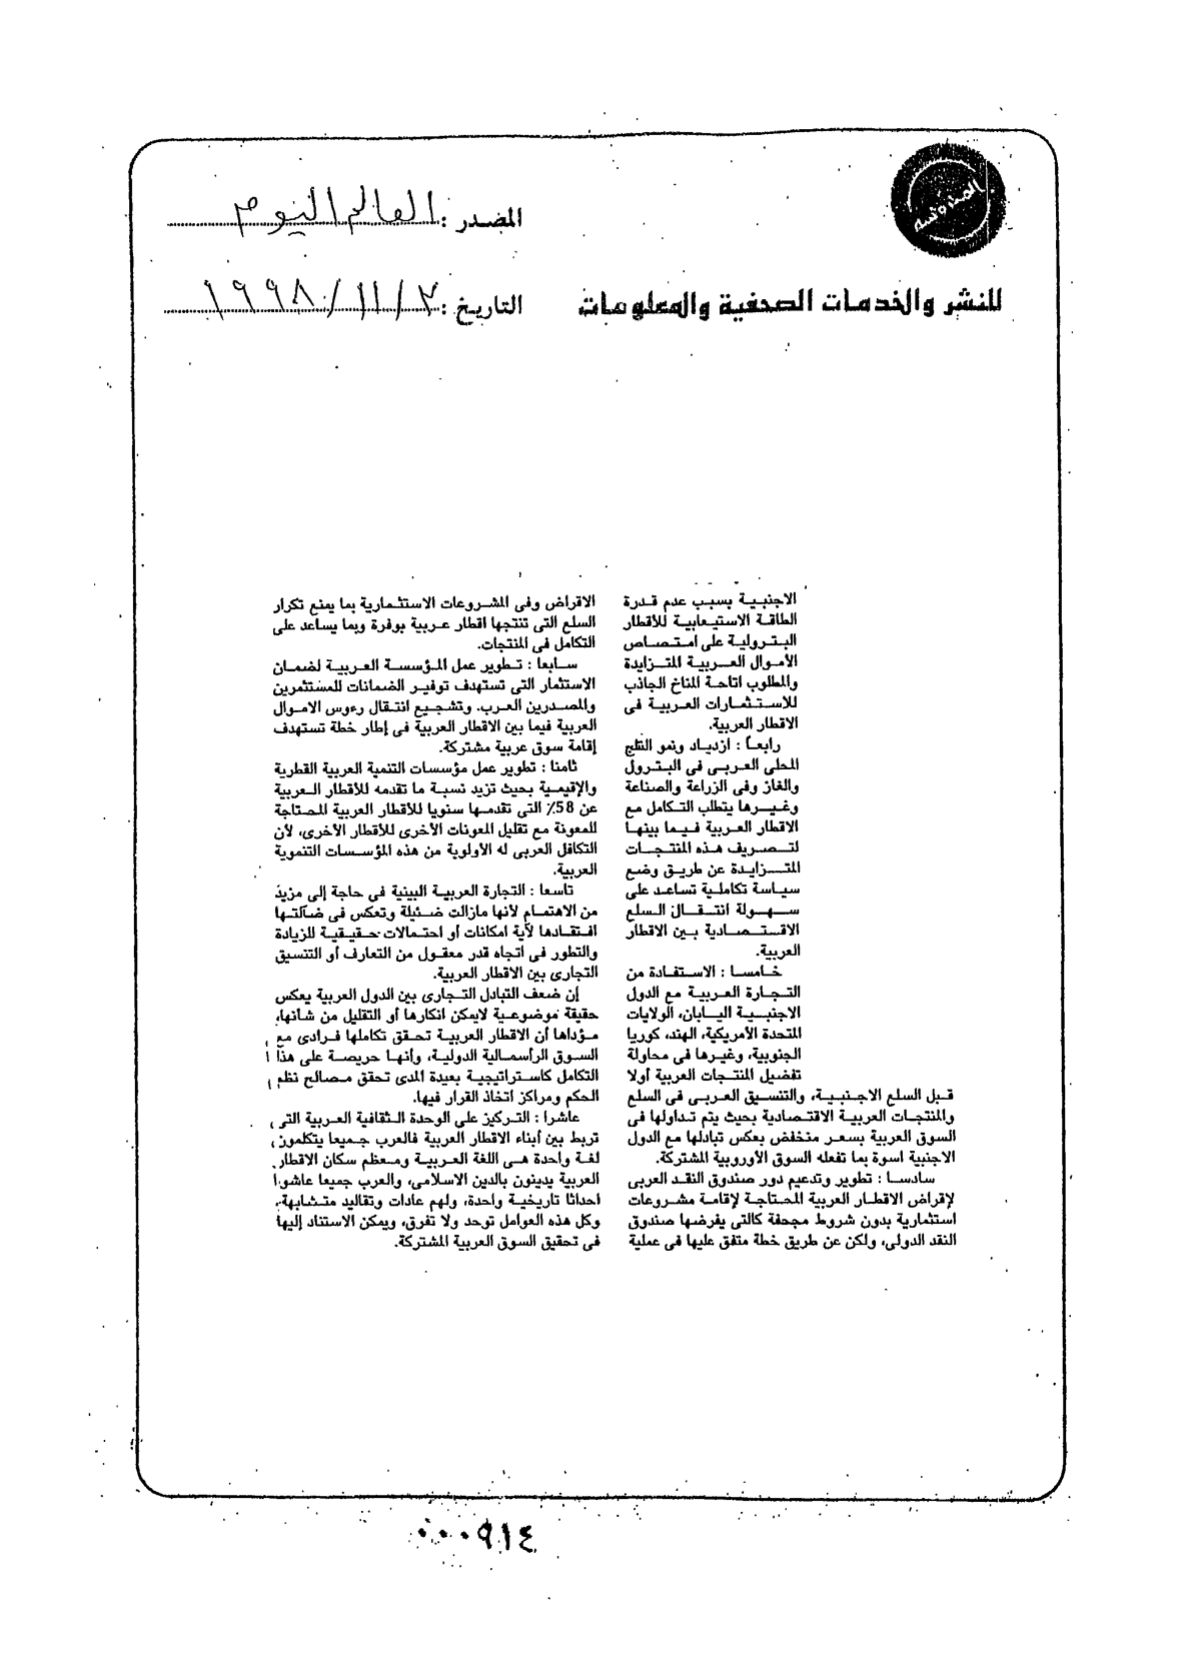 المصدر : العالم اليوم
للنشر والخدمات الصحفية والمعلومات
التاريخ : ٢ / ١١ / ١٩٩٨
الاجنبية بسبب عدم قدرة
الطاقة الاستيعابية للأقطار
البترولية على امتصاص
الأموال العربية المتزايدة
والمطلوب اتاحة المناخ الجاذب
للاستثمارات العربية فى
الاقطار العربية.
رابعا : ازدياد ونمو الناتج
المحلى العربى فى البترول
والغاز وفى الزراعة والصناعة
وغيرها يتطلب التكامل مع
الاقطار العربية فيما بينها
لتصريف هذه المنتجات
المتزايدة عن طريق وضع
سياسة تكاملية تساعد على
سهولة انتقال السلع
الاقتصادية بين الاقطار
العربية.
خامسا : الاستفادة من
التجارة العربية مع الدول
الاجنبية اليابان، الولايات
المتحدة الأمريكية، الهند، كوريا
الجنوبية، وغيرها فى محاولة
تفضيل المنتجات العربية أولا
قبل السلع الاجنبية، والتنسيق العربى فى السلع
والمنتجات العربية الاقتصادية بحيث يتم تداولها فى
السوق العربية بسعر منخفض بعكس تبادلها مع الدول
الاجنبية اسوة بما تفعله السوق الأوروبية المشتركة.
سادسا : تطوير وتدعيم دور صندوق النقد العربى
لإقراض الاقطار العربية المحتاجة لإقامة مشروعات
استثمارية بدون شروط مجحفة كالتى يفرضها صندوق
النقد الدولى، ولكن عن طريق خطة متفق عليها فى عملية
الاقراض وفى المشروعات الاستثمارية بما يمنع تكرار
السلع التى تنتجها اقطار عربية بوفرة وبما يساعد على
التكامل فى المنتجات.
سابعا : تطوير عمل المؤسسة العربية لضمان
الاستثمار التى تستهدف توفير الضمانات للمستثمرين
والمصدرين العرب. وتشجيع انتقال رءوس الاموال
العربية فيما بين الاقطار العربية فى إطار خطة تستهدف
إقامة سوق عربية مشتركة.
ثامنا : تطوير عمل مؤسسات التنمية العربية القطرية
والإقيمية بحيث تزيد نسبة ما تقدمه للأقطار العربية
عن 58٪ التى تقدمها سنويا للأقطار العربية المحتاجة
للمعونة مع تقليل المعونات الأخرى للأقطار الأخرى، لأن
التكافل العربى له الأولوية من هذه المؤسسات التنموية
العربية.
تاسعا : التجارة العربية البينية فى حاجة إلى مزيد
من الاهتمام لأنها مازالت ضئيلة وتعكس فى ضآلتها
افتقادها لأية امكانات أو احتمالات حقيقية للزيادة
والتطور فى اتجاه قدر معقول من التعارف أو التنسيق
التجارى بين الاقطار العربية.
إن ضعف التبادل التجارى بين الدول العربية يعكس
حقيقة موضوعية لايمكن انكارها أو التقليل من شانها،
مؤداها أن الاقطار العربية تحقق تكاملها فرادى مع
السوق الرأسمالية الدولية، وانها حريصة على هذا
التكامل كاستراتيجية بعيدة المدى تحقق مصالح نظم
الحكم ومراكز اتخاذ القرار فيها.
عاشرا : التركيز على الوحدة الثقافية العربية التى
تربط بين أبناء الاقطار العربية فالعرب جميعا يتكلمون
لغة واحدة هى اللغة العربية ومعظم سكان الاقطار
العربية يدينون بالدين الاسلامى، والعرب جميعا عاشوا
احداثا تاريخية واحدة، ولهم عادات وتقاليد متشابهة،
وكل هذه العوامل توحد ولا تفرق، ويمكن الاستناد إليها
فى تحقيق السوق العربية المشتركة.
٠٠٠٩١٤